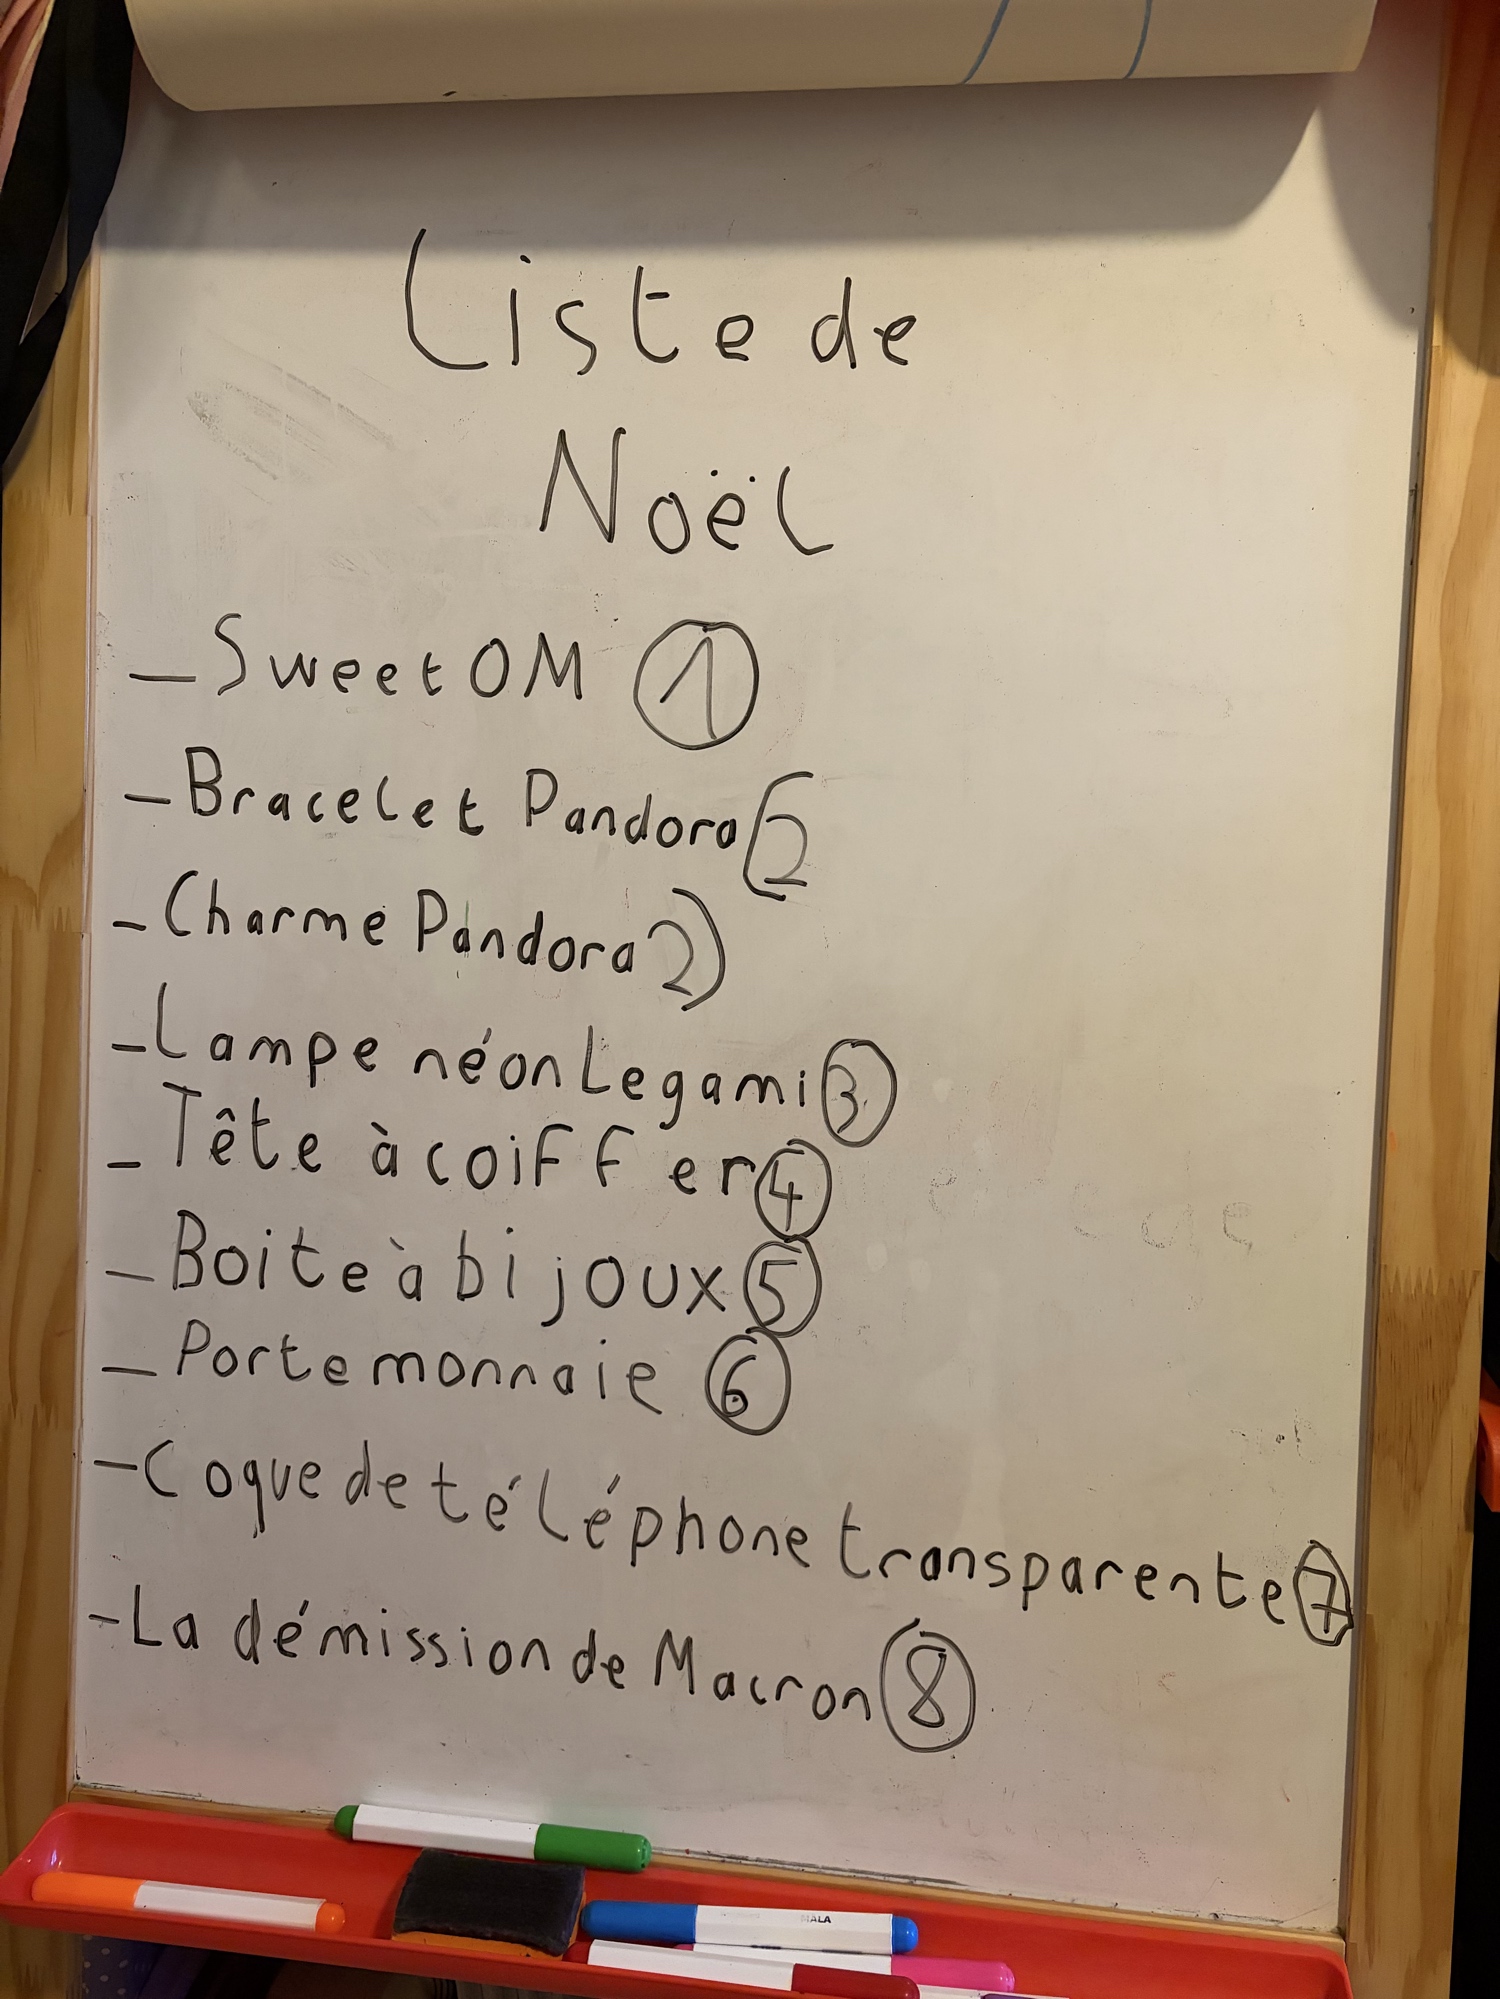 Liste de
Noël
- Sweet OM 1
- Bracelet Pandora (2
- Charme Pandora 2)
- Lampe néon Legami 3
- Tête à coiffer 4
- Boite à bijoux 5
- Porte monnaie 6
- Coque de téléphone transparente 7
- La démission de Macron 8
MÅLA